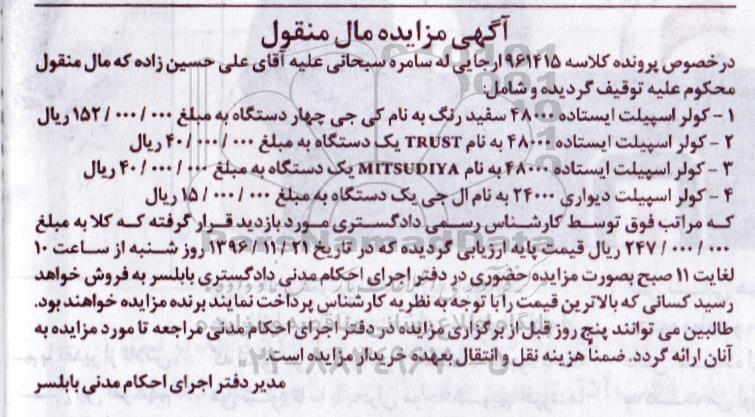 آگهی مزایده مال منقول
درخصوص پرونده کلاسه ۹۶۱۴۱۵ ارجایی له سامره سبحانی علیه آقای علی حسین زاده که مال منقول
محکوم علیه توقیف گردیده و شامل:
۱ - کولر اسپیلت ایستاده ۴۸۰۰۰ سفید رنگ به نام کی جی چهار دستگاه به مبلغ ۱۵۲/۰۰۰/۰۰۰ ریال
۲ - کولر اسپیلت ایستاده ۴۸۰۰۰ به نام TRUST یک دستگاه به مبلغ ۴۰/۰۰۰/۰۰۰ ریال
۳ - کولر اسپیلت ایستاده ۴۸۰۰۰ به نام MITSUDIYA یک دستگاه به مبلغ ۴۰/۰۰۰/۰۰۰ ریال
۴ - کولر اسپیلت دیواری ۲۴۰۰۰ به نام ال جی یک دستگاه به مبلغ ۱۵/۰۰۰/۰۰۰ ریال
که مراتب فوق توسط کارشناس رسمی دادگستری مورد بازدید قرار گرفته که کلا به مبلغ
۲۴۷/۰۰۰/۰۰۰ ریال قیمت پایه ارزیابی گردیده که در تاریخ ۱۳۹۶/۱۱/۲۱ روز شنبه از ساعت ۱۰
لغایت ۱۱ صبح بصورت مزایده حضوری در دفتر اجرای احکام مدنی دادگستری بابلسر به فروش خواهد
رسید کسانی که بالاترین قیمت را با توجه به نظریه کارشناس پرداخت نمایند برنده مزایده خواهند بود.
طالبین می توانند پنج روز قبل از برگزاری مزایده در دفتر اجرای احکام مدنی مراجعه تا مورد مزایده به
آنان ارائه گردد. ضمناً هزینه نقل و انتقال بعهده خریدار مزایده است.
مدیر دفتر اجرای احکام مدنی بابلسر